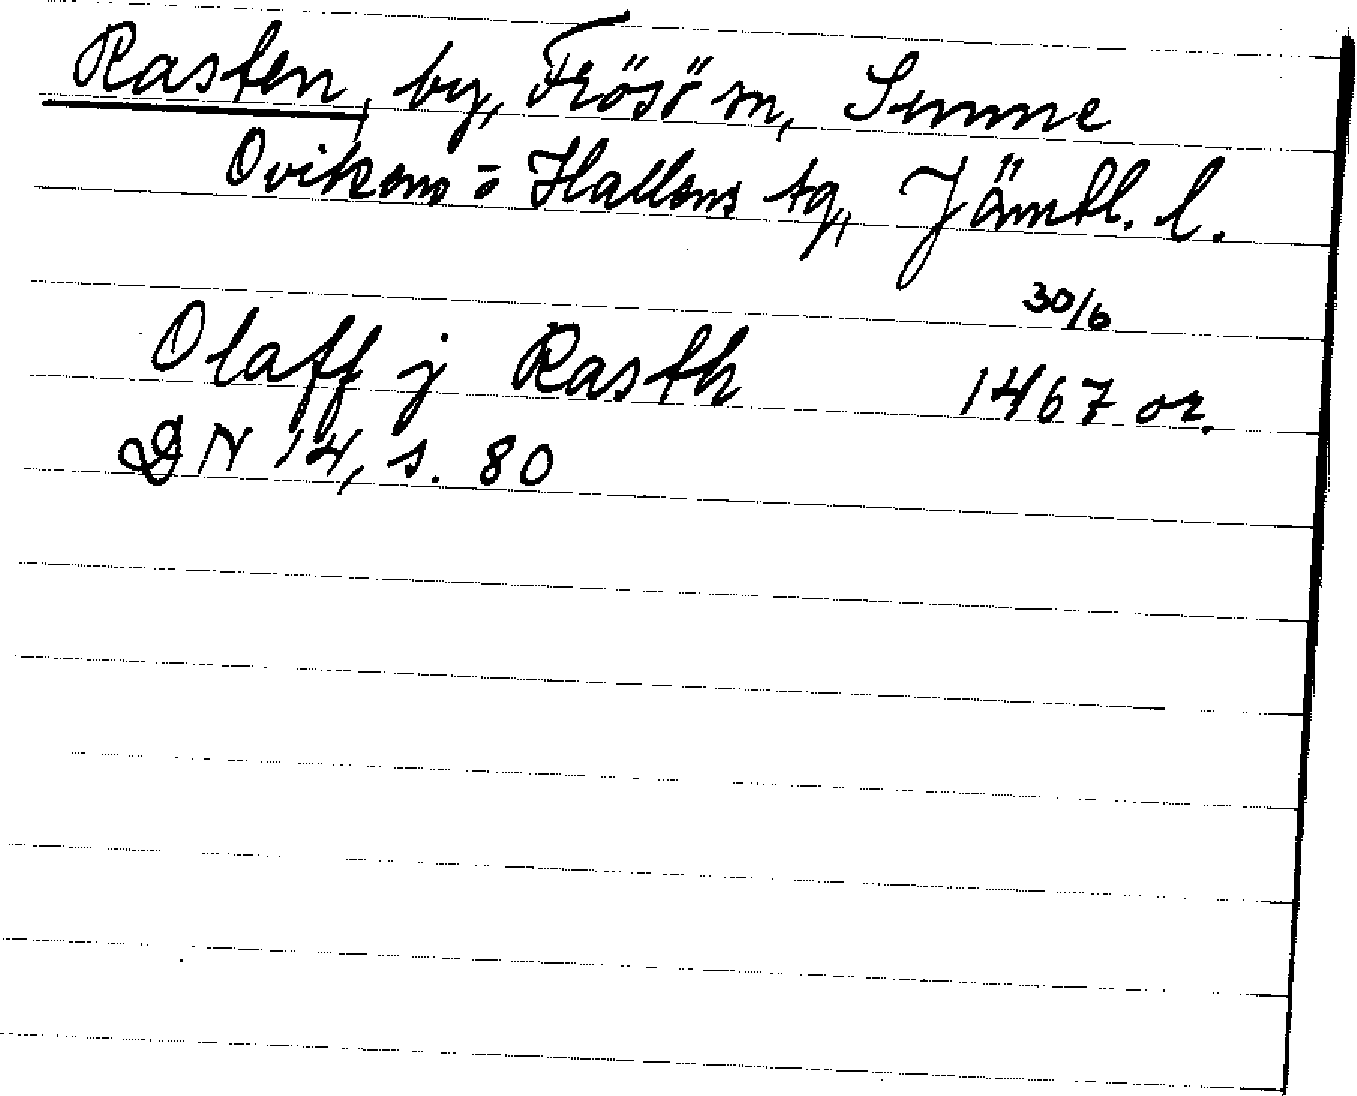 Rasten, by, Frösö sn, Sunne
Ovikens o Hallens tg, Jämtl. l.
30/6
Olaff j Rasth 1467 or.
DN 14, s. 80